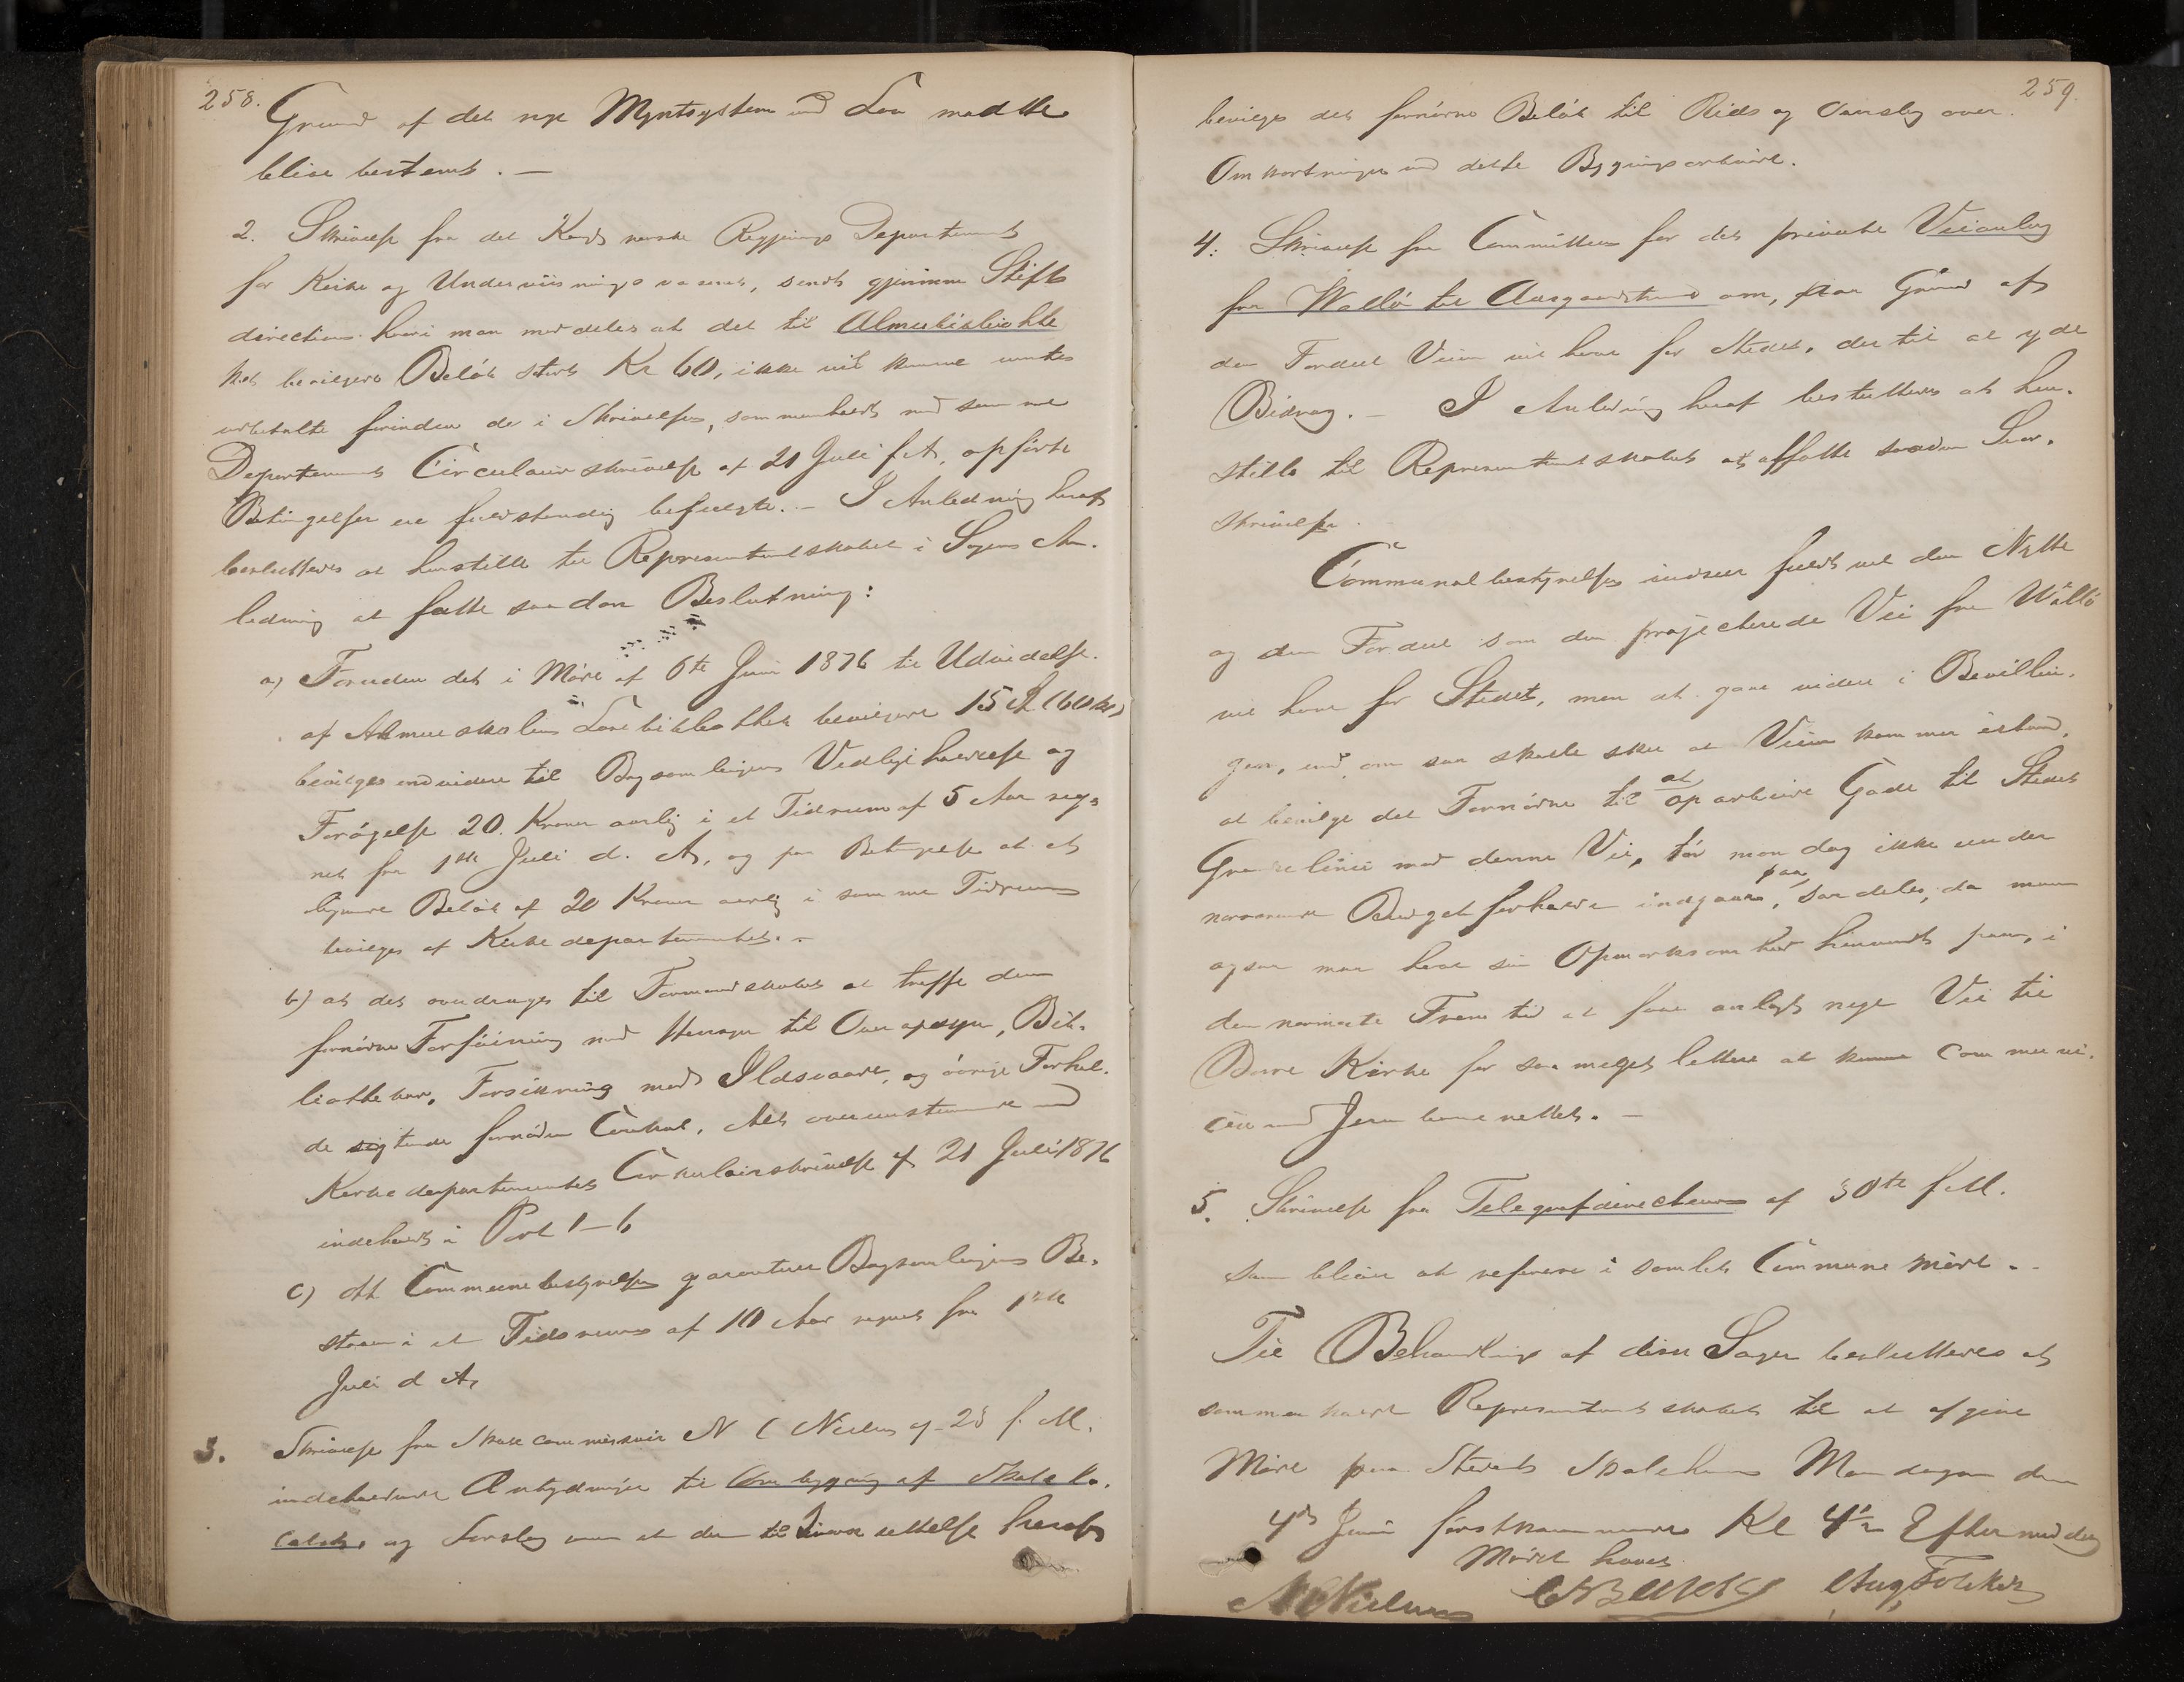 258.
Grund af det nye Myntsystem ved Lov maatte
blive bestemt. —
2. Skrivelse fra det Kongl. norske Regjerings Departement
for Kirke og Underviisningsvæsenet, sendt gjennem Stifts
directionen hvori man meddeler at det til Almuebibliothe
ket bevilgede Beløb stort Kr 60, ikke vil kunne ventes
udbetalte forinden de i Skrivelsen, sammenholdt med samme
Departements Circulairskrivelse af 21 Juli f A, opførte
Betingelser ere fuldstændig befulgte. - I Anledning heraf
besluttedes at henstille til Representantskabet i Sagens An-
ledning at fatte saadan Beslutning:
a) Foruden det i Møde af 6te Juni 1876 til Udvidelse
af Almueskolens Laanebibliothek bevilgede 15 Spd (60 kr)
bevilges endvidere til Bogsamlingens Vedligeholdelse og
Forøgelse 20. Kroner aarlig i et Tidsrum af 5 Aar reg-
net fra 1ste Juli d. A, og paa Betingelse at et
lignende Beløb af 20 Kroner aarlig i samme Tidsrum
bevilges af Kirkedepartementet. -
b) at det overdrages til Formandskabet at træffe den
fornødne Forføining med Hensyn til Overopsyn, Bib-
liothekar, Forsikring mod Ildsvaade, og øvrige Forhol-
de sigtende fornøden Control, Alt overensstemmende med
Kirkedepartementets Cirkulairskrivelse af 21 Juli 1876
indeholdt i Post 1-6
c) At Communebestyrelsen garanterer Bogsamlingens Be-
staaen i et Tidsrum af 10 Aar regnet fra 1ste
Juli d A,
3. Skrivelse fra Skolecommissair N C Nielsen af 28 f. M.
indeholdende Antydninger til Ombygning af Skolelo-
calet, og Forslag om at der til Iværksettelse heraf
259.
bevilges det fornødne Beløb til Rids og Overslag over
Omkostninger ved dette Bygningsarbeide.
4. Skrivelse fra Committeen for det private Veianlæg
fra Walløe til Aasgaardstrand om, paa Grund af
den Fordeel Veien vil have for Stedet, dertil at yde
Bidrag. - I Anledning heraf besluttedes at hen-
stille til Representantskabet at affatte saadan Svar-
skrivelse.
Communalbestyrelsen indseer fuldt vel den Nytte
og den Fordeel som den projecterede Vei fra Walló
vil have for Stedet, men at gaae videre i Bevillin-
gen, end, om saa skulde skee at Veien kommer istand,
at bevilge det Fornødne til at oparbeide Gade til Stedets
Grændselinie mod denne Vei, tør man dog ikke under
nærværende Budgetforholde indgaae paa, særdeles, da man
ogsaa maa have sin Opmærksomhed henvendt paa, i
den nærmeste Fremtid at faae anlagt nye Vei til
Borre Kirke for saa meget lettere at kunne communi-
cere med Jernbanenettet. -
5. Skrivelse fra Telegrafdirecteuren af 30te f. M.
som bliver at referere i samlet Commune Møde. -
Til Behandling af disse Sager besluttedes at
sammenkalde Representantskabet til at afgive
Møde paa Stedets Skolehuus Mandagen den
4de Juni førstkommende Kl 4 1/2 Eftermiddag
Mødet hævet.
N C Nielsen
Aug. Føleker